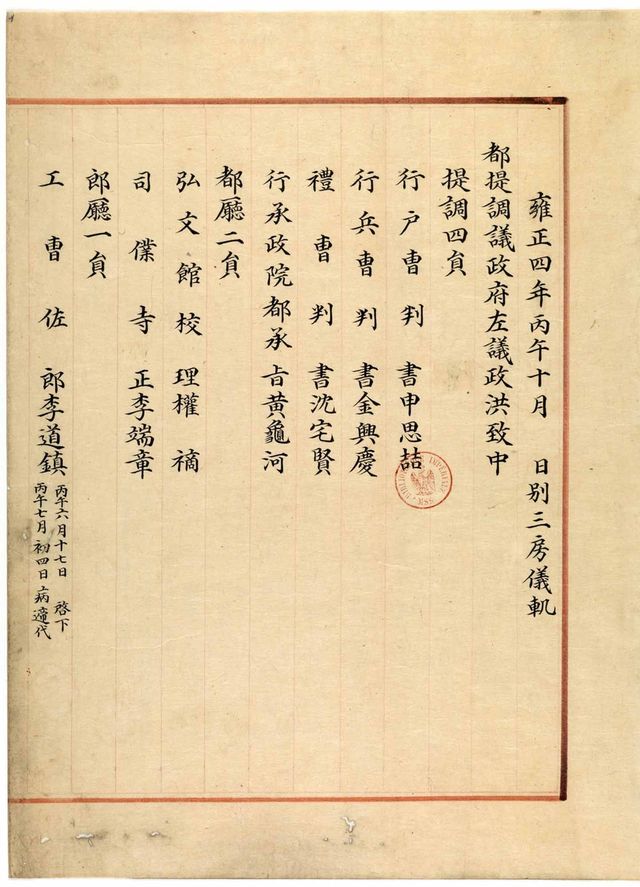 雍正四年丙午十月 日別三房儀軌
都提調議政府左議政洪致中
提調四貟
行戶曹判書申思喆
行兵曹判書金興慶
禮曹判書沈宅賢
行承政院都承旨黃龜河
都廳二貟
弘文館校理權𥛚
司僕寺正李端章
郎廳一貟
工曹佐郎李道鎮
丙午六月十七日 啓下
丙午七月初四日病遞代
MSS